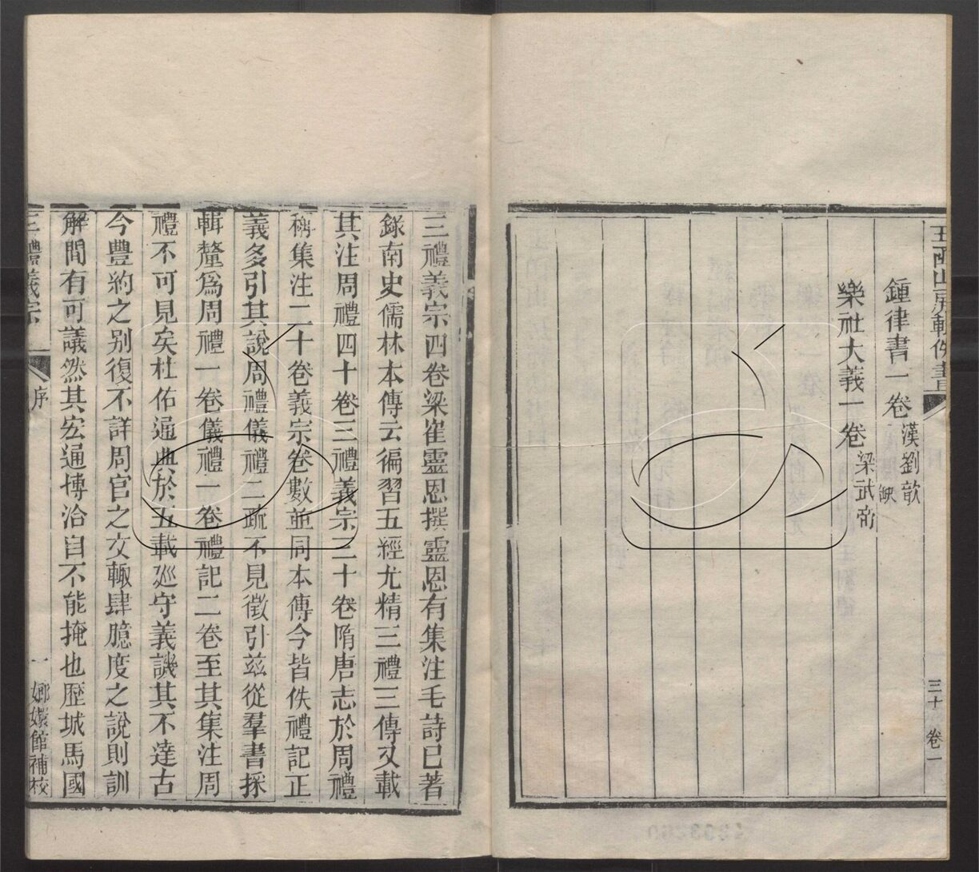 玉函山房輯佚書
鍾律書一卷 漢劉歆 缺
樂社大義一卷 梁武帝
三十 卷一
三禮義宗四卷梁崔靈恩撰靈恩有集注毛詩已著
錄南史儒林本傳云徧習五經尤精三禮三傳又載
其注周禮四十卷三禮義宗三十卷隋唐志於周禮
稱集注二十卷義宗卷數並同本傳今皆佚禮記正
義多引其說周禮儀禮二疏不見徵引茲從羣書採
輯釐爲周禮一卷儀禮一卷禮記二卷至其集注周
禮不可見矣杜佑通典於五載廵守義譏其不達古
今豐約之别復不詳周官之文輙肆臆度之說則訓
解間有可議然其宏通博洽自不能掩也歷城馬國
三禮義宗 序 一 嫏嬛館補校